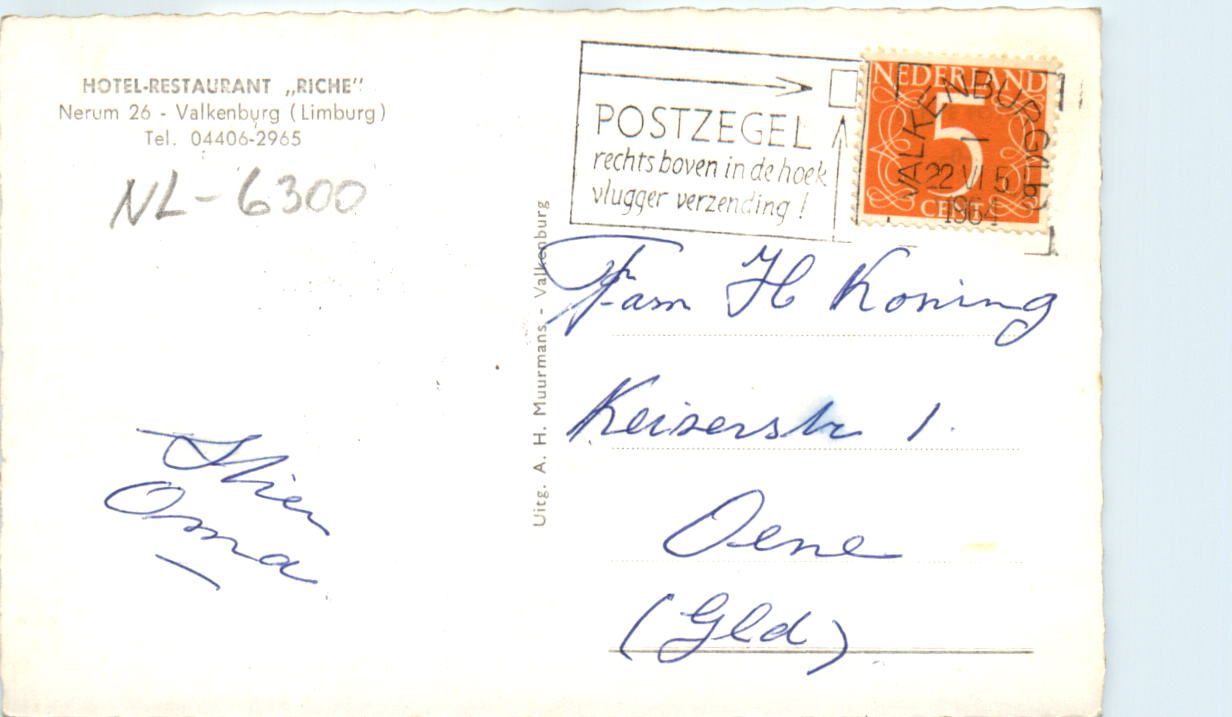 HOTEL-RESTAURANT „RICHE"
Nerum 26 - Valkenburg (Limburg)
Tel. 04406-2965
NL-6300
Oma
Uitg. A. H. Muurmans - Valkenburg
POSTZEGEL
rechts boven in de hoek
vlugger verzending!
NEDERLAND
5
CENT
VALKENBURG (LB)
22 VI 5
1964
Fam H Koning
Keizerstr 1.
Oene
(Gld)